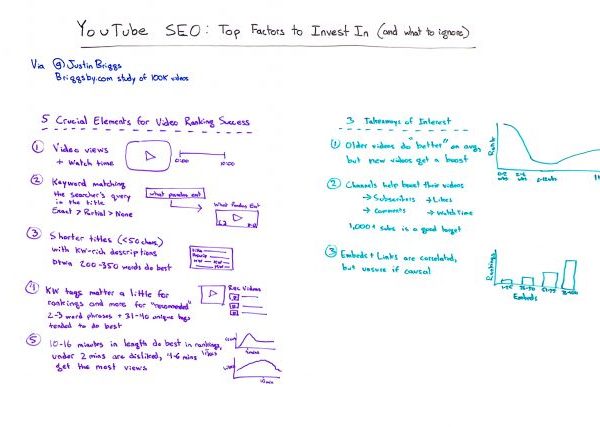 YouTube SEO: Top Factors to Invest In (and what to ignore)
Via @ Justin Briggs
Briggsby.com study of 100K videos
5 Crucial Elements for Video Ranking Success
1 Video views
+ Watch time
0:00 10:00
2 Keyword matching
the searcher's query
in the title
Exact > Partial > None
what pandas eat
What Pandas Eat
3 Shorter titles (<50 chars)
with KW-rich descriptions
Btwn 200-350 words do best
4 KW tags matter a little for
rankings and more for "recommended"
2-3 word phrases + 31-40 unique tags
tended to do best
Rec Videos
5 10-16 minutes in length do best in rankings,
under 2 mins are disliked, 4-6 mins
get the most views
3 Takeaways of Interest
1 Older videos do "better" on avg,
but new videos get a boost
Rank
2 Channels help boost their videos
→ Subscribers → Likes
→ Comments → Watch Time
1,000+ subs is a good target
3 Embeds + Links are correlated,
but unsure if causal
Rankings
Embeds